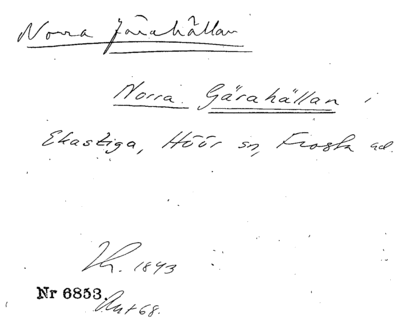 Norra Järahällan
Norra Gärahällan i
Ekastiga, Höör sn, Frosta hd.
1843
Nr 6853.